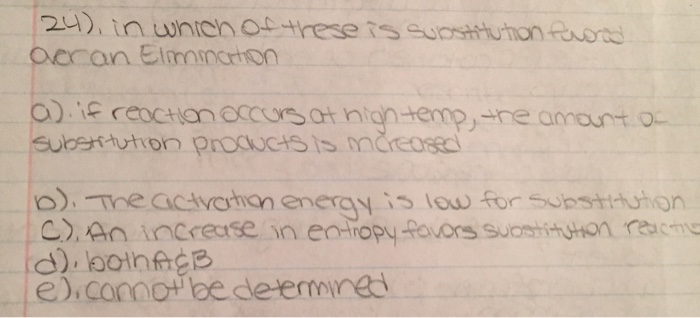 24). in which of these is substitution favored
over an Elimination
a). if reaction occurs at high temp, the amount of
substitution products is increased
b). The activation energy is low for substitution
C). An increase in entropy favors substitution reactio
d). both A&B
e). cannot be determined